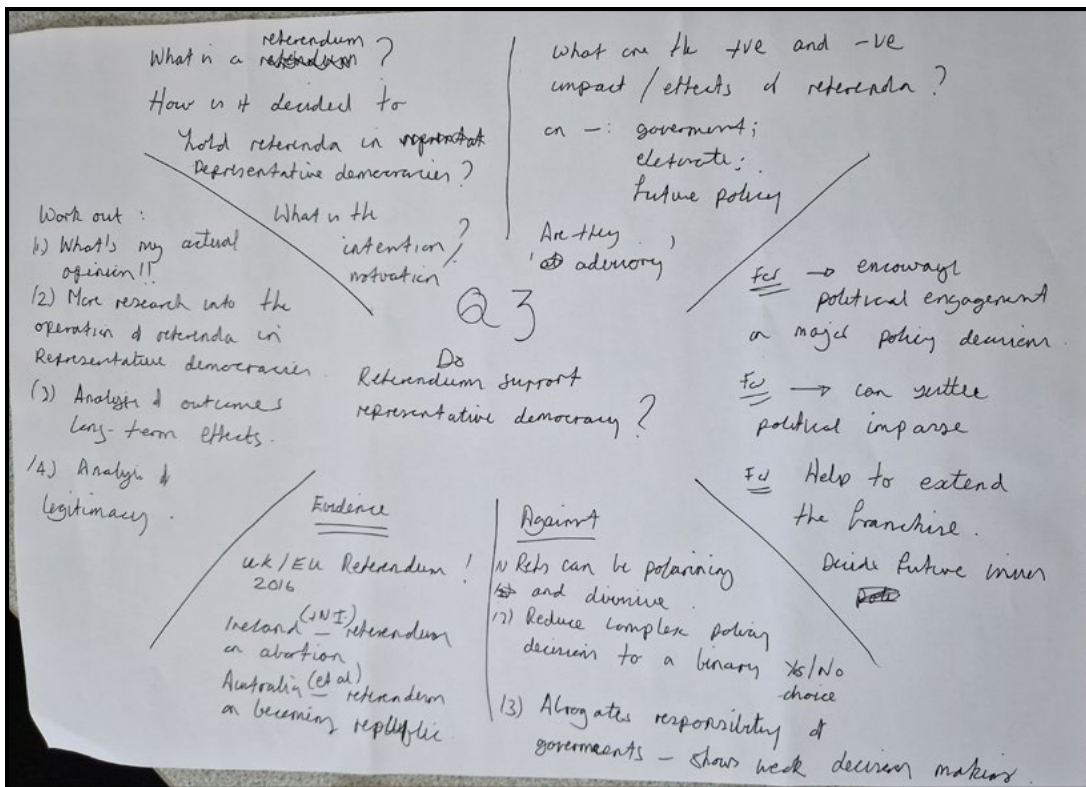 What is a referendum ?
How is it decided to
hold referenda in
Representative democracies ?
What is the
intention /
motivation ?
What are the +ve and -ve
impact / effects of referenda ?
on - : goverment ;
eletorate ;
future policy
Are they
advisory ?
Work out :
(1) What's my actual
opinion !!
(2) More research into the
operation of referenda in
Representative democracies.
(3) Analysis of outcomes
long-term effects.
(4) Analysis of
legitimacy .
Q 3
Do
Referendum support
representative democracy ?
For → encourage
political engagement
on major policy decisions .
For → can settle
political impasse
For Help to extend
the franchise .
Decide future issues
Evidence
UK / EU Referendum !
2016
Ireland (+NI) – referendum
on abortion
Australia (et al) – referendum
on becoming republic .
Against
(1) Refs can be polarising
and divisive .
(2) Reduce complex policy
decisions to a binary Yes/No
choice
(3) Abrogates responsibility of
governments – shows weak decision making .